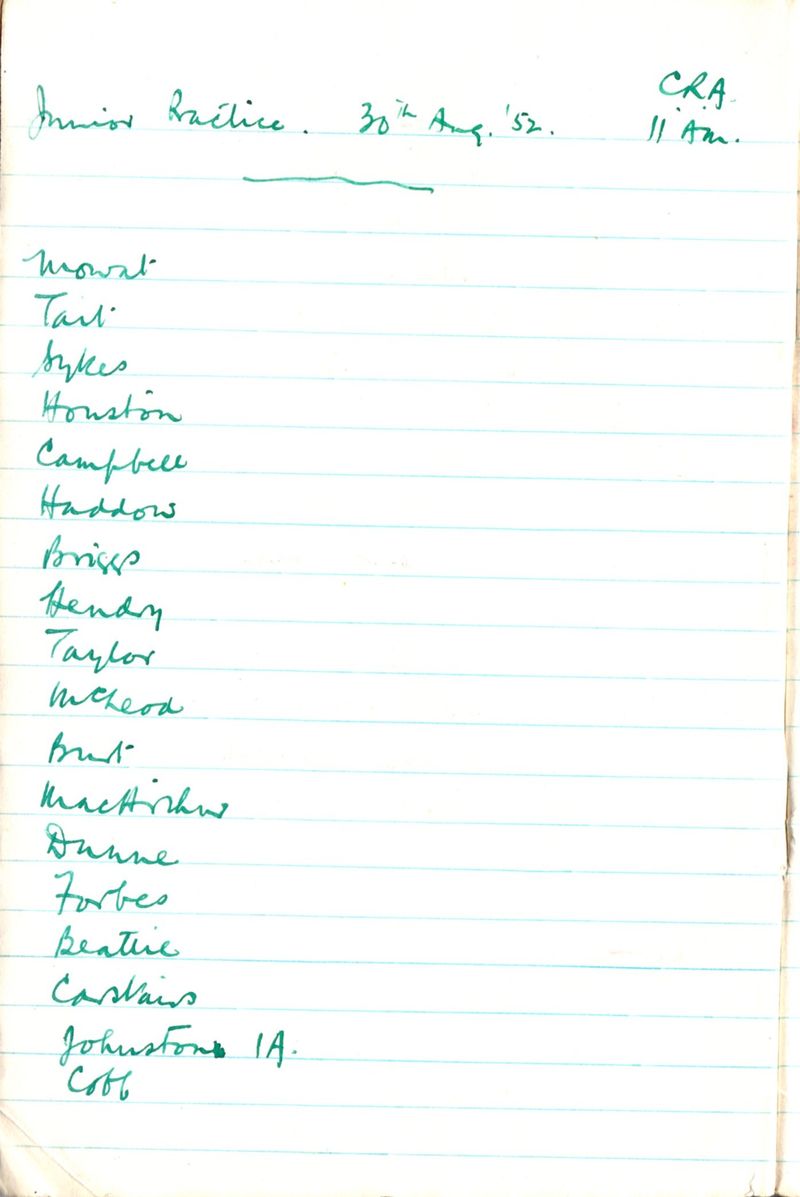 CRA
Junior Practice. 30th Aug. '52. 11 Am.
Mowat
Tait
Sykes
Houston
Campbell
Haddow
Briggs
Hendry
Taylor
McLeod
Burt
MacArthur
Dunne
Forbes
Beattie
Carstairs
Johnston 1A.
Cobb